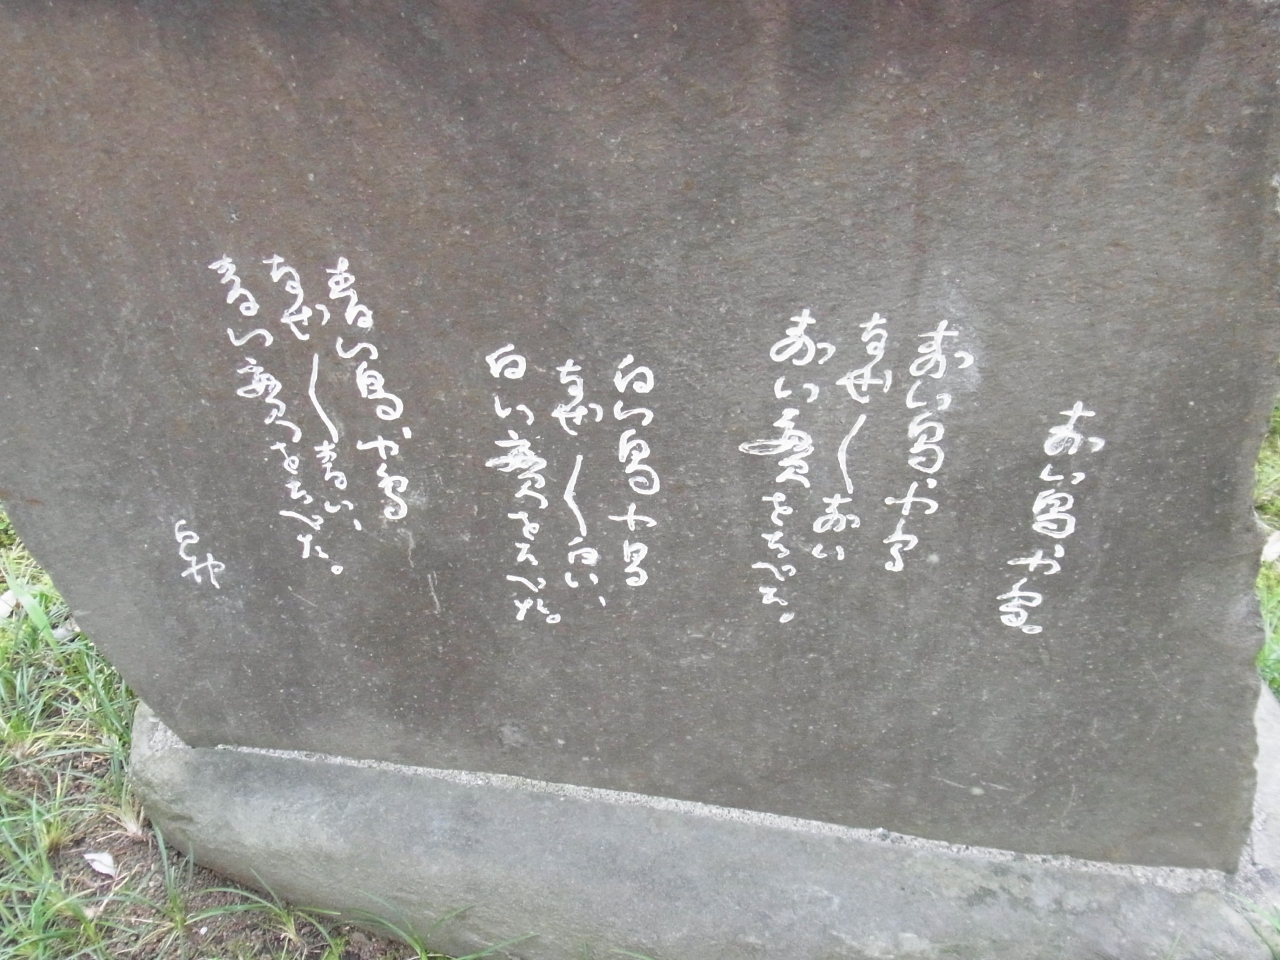 赤い鳥小鳥。
赤い鳥小鳥
なぜ〳〵赤い
赤い実をたべた。
白い鳥小鳥
なぜ〳〵白い、
白い実をたべた。
青い鳥小鳥
なぜ〳〵青い、
青い実をたべた。
白秋